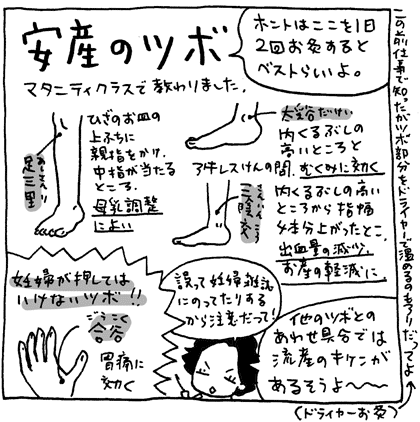 安産のツボ
マタニティクラスで教わりました。
ホントはここを1日
2回お灸すると
ベストらしいよ。
ひざのお皿の
上ふちに
親指をかけ、
中指が当たる
ところ。
母乳調整
によい
あしさんり
足三里
太谿だけい
内くるぶしの
高いところと
アキレスけんの間。むくみに効く
さんいんこう
三陰交
内くるぶしの高い
ところから指幅
4本分上がったとこ。
出血量の減少、
お産の軽減に。
妊婦が押しては
いけないツボ!!
ごうこく
合谷
胃痛に
効く
誤って妊婦雑誌
にのってたりする
から注意だって!
他のツボとの
あわせ具合では
流産のキケンが
あるそうよ〜〜
この前仕事で知ったがツボ部分をドライヤーで温めるのもアリだってよ
(ドライヤーお灸)